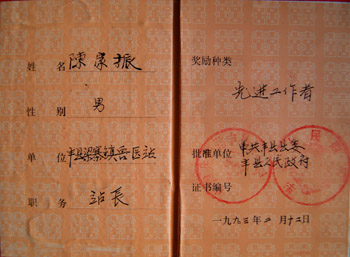 姓 名 陈景振
性 别 男
单 位 丰县梁寨镇兽医站
职 务 站长
奖励种类
先进工作者
批准单位 中共丰县县委
丰县人民政府
证书编号
一九九三年二月十二日